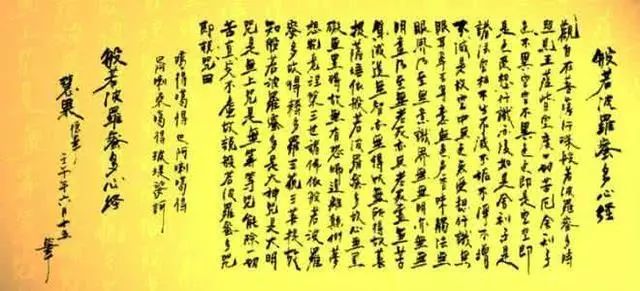 般若波羅蜜多心經
觀自在菩薩行深般若波羅蜜多時
照見五蘊皆空度一切苦厄舍利子
色不異空空不異色色即是空空即
是色受想行識亦復如是舍利子是
諸法空相不生不滅不垢不淨不增
不減是故空中無色無受想行識無
眼耳鼻舌身意無色聲香味觸法無
眼界乃至無意識界無無明亦無無
明盡乃至無老死亦無老死盡無苦
集滅道無智亦無得以無所得故菩
提薩埵依般若波羅蜜多故心無罣
礙無罣礙故無有恐怖遠離顛倒夢
想究竟涅槃三世諸佛依般若波羅
蜜多故得阿耨多羅三藐三菩提故
知般若波羅蜜多是大神咒是大明
咒是無上咒是無等等咒能除一切
苦真實不虛故說般若波羅蜜多咒
即說咒曰
噶得噶得巴阿喇噶得
巴阿喇噶得
般若波羅蜜多心經
年六月十五